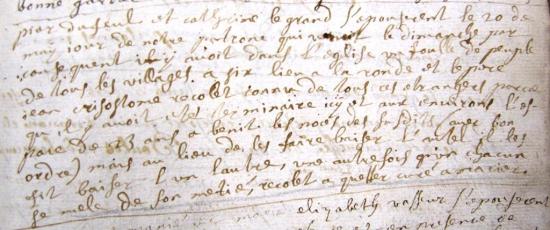 bonne garde
pier duseul et catherine le grand s'epouserent le 20 de
may jour de notre patrone qui venoit le dimanche par
consequent il y avoit dans l'eglise un foulle de peuple
de tous les villages, a six lieu a la ronde et le pere
jean crisostome recolet connu de tous ces etrangers parce
qu'il avoit eté seminaire icy et aux environs l'es-
pace de 23 ans a benit les noces des susdits (avec bon
ordre) mais au lieu de les faire baiser l'autel il les
fit baiser l'un l'autre une autre fois que chacun
se mele de son metier recolet a quester curé a marier.
elizabeth vasseur s'epouserent
en presence de